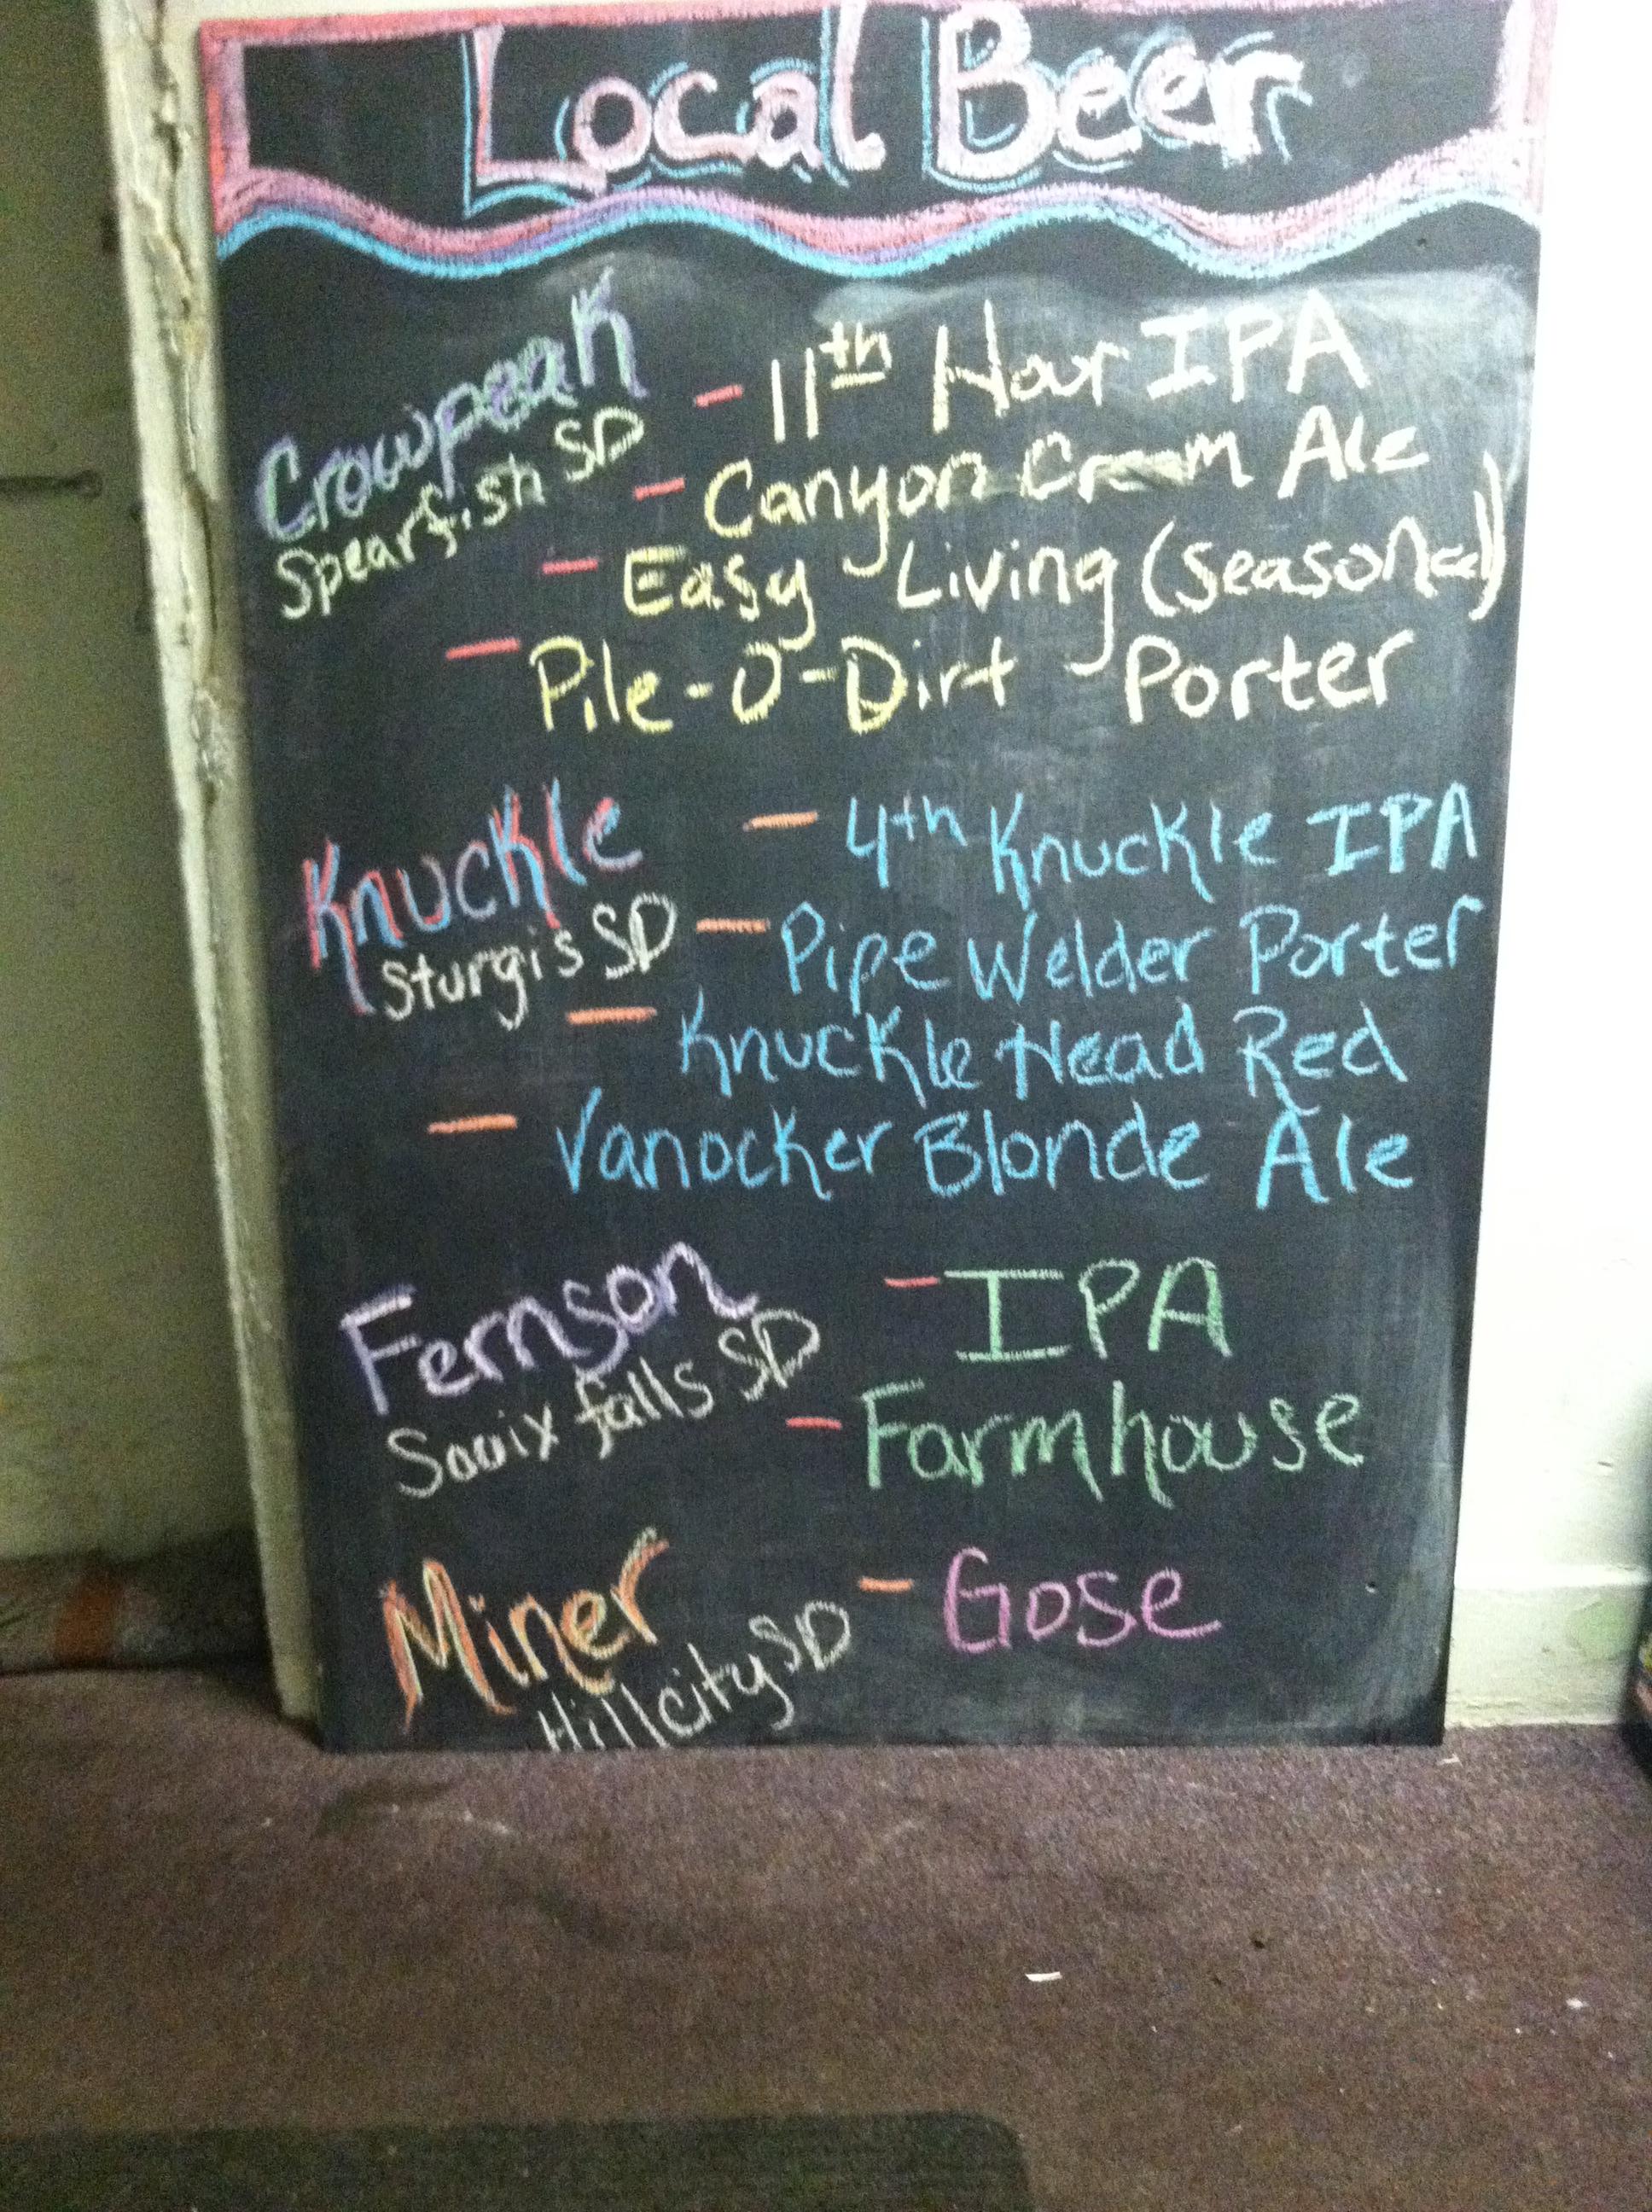 Local Beer
Crowpeak
Spearfish SD
- 11th Hour IPA
- Canyon Cream Ale
- Easy Living (seasonal)
- Pile-O-Dirt Porter
Knuckle
Sturgis SD
- 4th Knuckle IPA
- Pipe Welder Porter
- Knuckle Head Red
- Vanocker Blonde Ale
Fernson
Souix falls SD
- IPA
- Farmhouse
Miner
Hillcity SD
- Gose